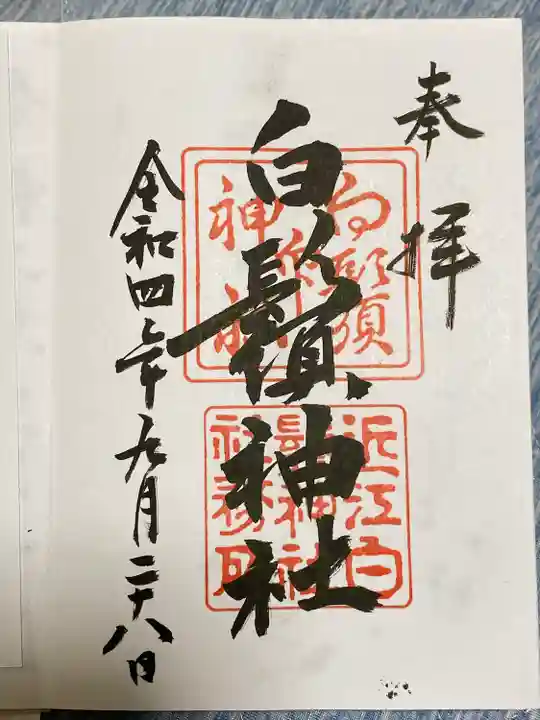 奉拝
白鬚神社
令和四年九月二十八日
近江白
鬚神社
社務所